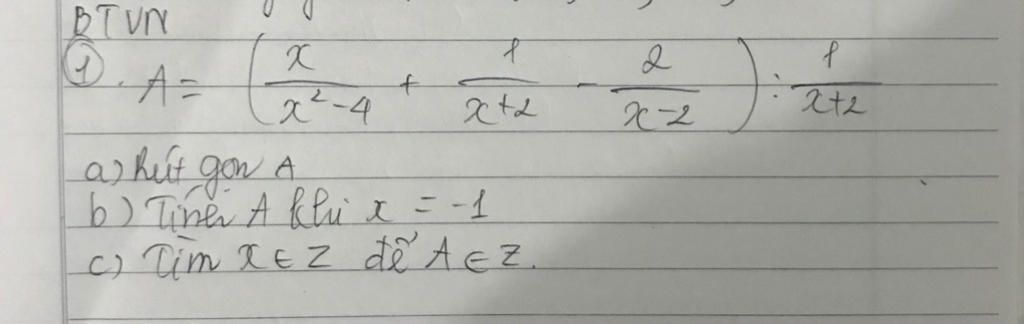 BTVN
① . A = ( x / (x² - 4) + 1 / (x + 2) - 2 / (x - 2) ) : 1 / (x + 2)
a) Rút gọn A
b) Tính A khi x = -1
c) Tìm x ∈ Z để A ∈ Z.